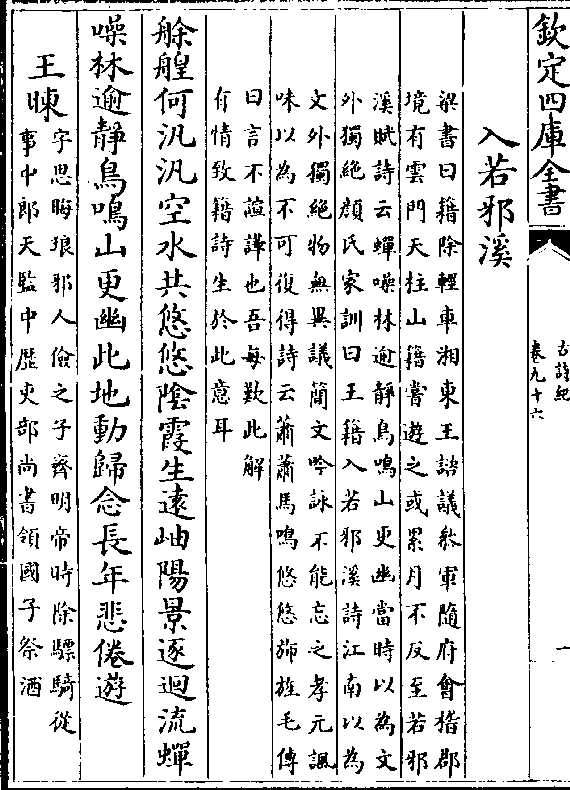 欽定四庫全書
古詩紀
卷九十六
一
入若邪溪
梁書曰籍除輕車湘東王諮議叅軍隨府會稽郡
境有雲門天柱山籍嘗遊之或累月不反至若邪
溪賦詩云蟬噪林逾静鳥鳴山更幽當時以為文
外獨絶顔氏家訓曰王籍入若邪溪詩江南以為
文外獨絶物無異議簡文吟詠不能忘之孝元諷
味以為不可復得詩云蕭蕭馬鳴悠悠斾旌毛傳
曰言不諠譁也吾每歎此解
有情致籍詩生於此意耳
艅艎何汎汎空水共悠悠陰霞生遠岫陽景逐迴流蟬
噪林逾静鳥鳴山更幽此地動歸念長年悲倦遊
王暕
字思晦琅邪人儉之子齊明帝時除驃騎從
事中郎天監中歴吏部尚書領國子祭酒